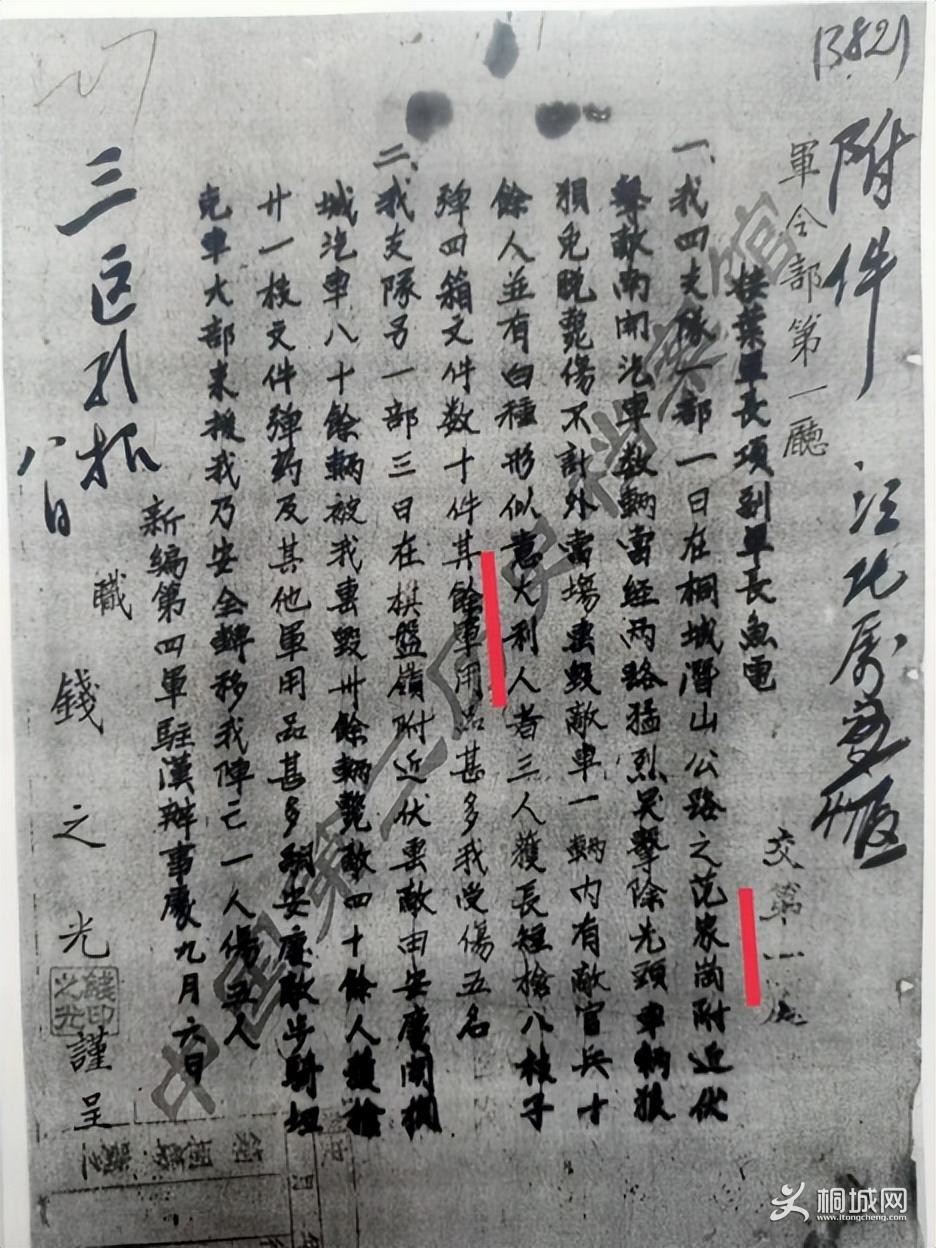 13821
附件
軍令部第一廳
交第一處
接葉軍長項副軍長魚電
一、我四支隊一部一日在桐城潛山公路之范家崗附近伏
擊敵南開汽車數輛當經兩路猛烈夾擊除先頭車輛狼
狽兔脫斃傷不計外當場焚毀敵車一輛內有敵官兵十
餘人並有白種形似意大利人者三人獲長短槍八枝子
彈四箱文件数十件其餘軍用品甚多我受傷五名
二、我支隊另一部三日在棋盤嶺附近伏襲敵由安慶開桐
城汽車八十餘輛被我焚毀卅餘輛斃敵四十餘人獲槍
廿一枝文件彈药及其他軍用品甚多 安慶敵步騎坦
克車大部来援我乃安全轉移我陣亡一人傷五人
新編第四軍駐漢辦事處九月六日
職 錢之光 謹呈
錢印之光
三
八日
中国第二历史档案馆
桐城网
www.itongcheng.com